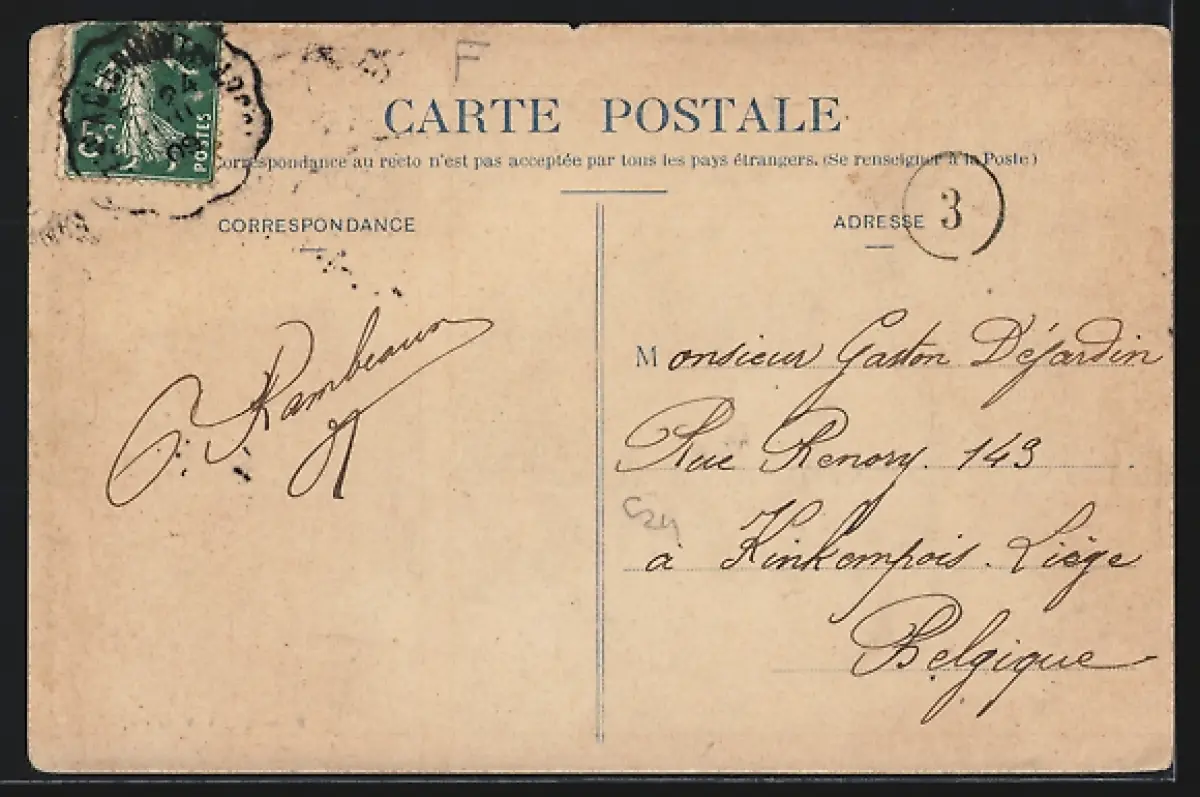 F
CARTE POSTALE
Correspondance au recto n'est pas acceptée par tous les pays étrangers. (Se renseigner à la Poste)
5c
POSTES
24
09
CORRESPONDANCE
ADRESSE
3
Rambeaux
Monsieur Gaston Déjardin
Rue Renory. 143
à Kinkempois. Liège
Belgique